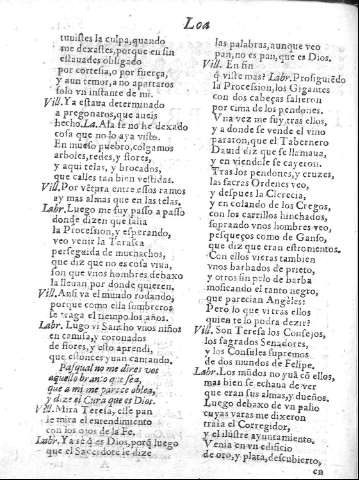 Loa
tuuistes la culpa, quando
me dexastes, porque en fin
estauades obligado
por cortesia, o por fuerça,
y aun temor, a no apartaros
solo vn instante de mi.
Vill. Ya estaua determinado
a pregonaros, que aueis
hecho. La. Asa fe no he dexado
cosa que no lo aya visto.
En nuestro pueblo, colgamos
arboles, redes, y flores,
y aqui telas, y brocados,
que calles tan bien vestidas.
Vill. Por ventura entre essos ramos
ay mas almas que en las telas.
Labr. Luego me fuy passo a passo
donde dizen que salia
la Procession, y esperando,
veo venir la Tarasca
perseguida de muchachos,
que diz que no es cosa viua,
son que vnos hombres debaxo
la lleuan por donde quieren.
Vill. Ansi va el mundo rodando,
porque como ella sombreros
se traga el tiempo los años.
Labr. Lugo vi Sancho vnos niños
en camisa, y coronados
de flores, y esto aprendi,
que estonces yuan cantando.
Pasqual no me dires vos
aquello branco que sea,
que a mi me parece oblea,
y dize el Cura que es Dios.
Vill. Mira Teresa, esse pan
le mira el entendimiento
con los ojos de la Fe.
Labr. Ya se q̃ es Dios, porq̃ luego
que el Sacerdote le dize
las palabras, aunque veo
pan, no es pan, que es Dios.
Vill. En fin
q̃ viste mas? Labr. Prosiguiẽdo
la Procession, los Gigantes
con dos cabeças salieron
por cima de los pendones.
Vna vez me fuy tras ellos,
y a donde se vende el vino
pararon, que el Tabernero
Dauid diz que se llamaua,
y en viendole se cayeron.
Tras los pendones, y cruzes,
las sacras Ordenes veo,
y despues la Clerecia,
y en colando de los Gregos,
con los carrillos hinchados,
soprando vnos hombres veo,
pesqueços como de Ganso,
que diz que eran estromentos.
Con ellos vieras tambien
vnos barbados de prieto,
y otros sin pelo de barba
mosicando el tanto negro,
que parecian Angeles:
Pero lo que vi tras ellos
quien te lo podra dezir?
Vill. Son Teresa los Consejos,
los sagrados Senadores,
y los Consules supremos
de dos mundos de Felipe.
Labr. Los mũdos no yuã cõ ellos,
mas bien se echaua de ver
que eran sus almas, y dueños.
Luego debaxo de vn palio
cuyas varas me dixeron
traia el Corregidor,
y el ilustre ayuntamiento.
Venia en vn edificio
de oro, y plata, descubierto,
en